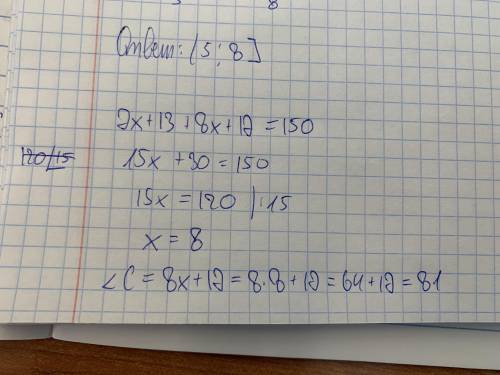 Ответ: (5; 8]
7x+13+8x+17=150
120/15 15x+30=150
15x=120 |:15
x=8
∠C=8x+17=8·8+17=64+17=81